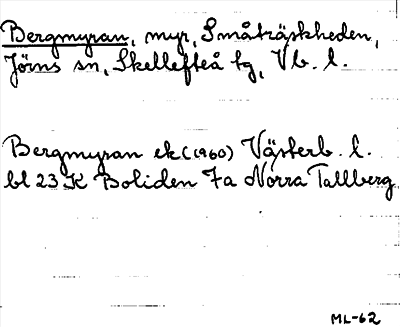 Bergmyran, myr, Småträskheden,
Jörns sn, Skellefteå tg, Vb. l.
Bergmyran ek (1960) Västerb. l.
bl 23 K Boliden 7a Norra Tallberg
ML-62